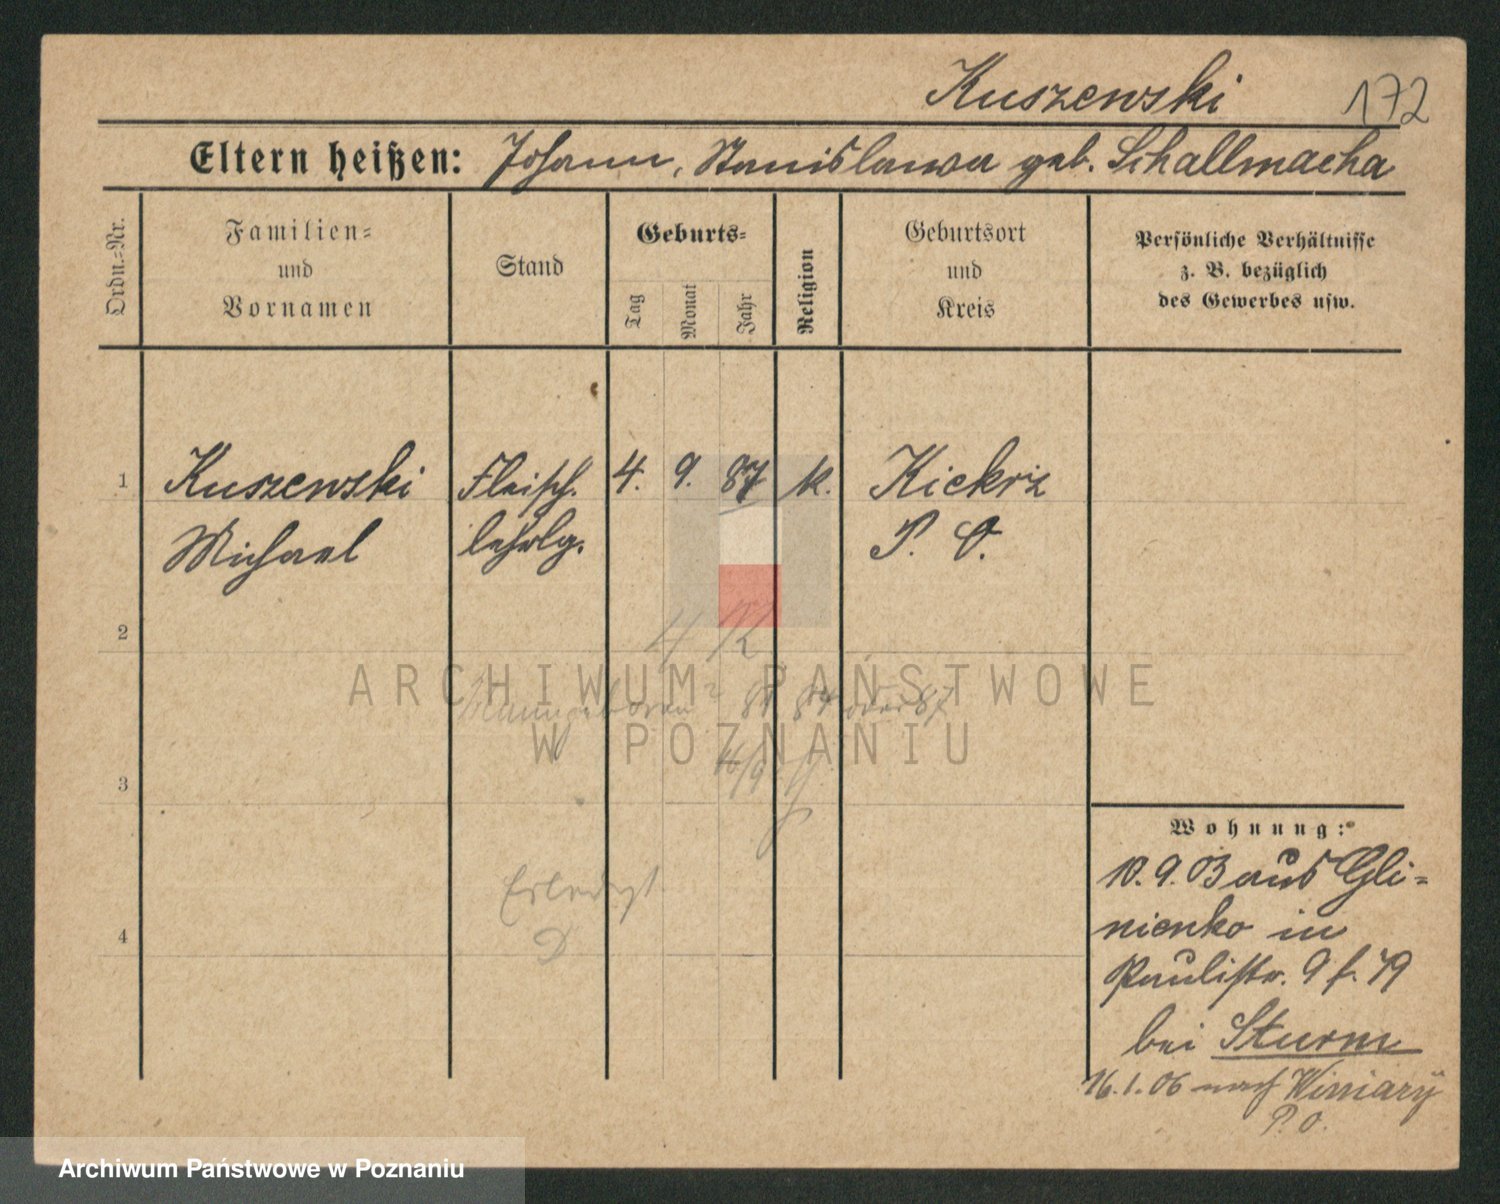 Kuszewski 172
Eltern heißen: Johann, Stanislawa geb. Schallmacha
Ordn.-Nr.
Familien-
und
Vornamen
Stand
Geburts-
Tag
Monat
Jahr
Religion
Geburtsort
und
Kreis
Persönliche Verhältnisse
z. B. bezüglich
des Gewerbes usw.
1 Kuszewski Fleisch. 4. 9. 87 k. Kiekrz
Michael lehrlg. P. O.
2
ARCHIWUM PAŃSTWOWE
W POZNANIU
3
Wohnung:
10.9.03 aus Gli-
nienko in
Paulistr. 9 f. 79
bei Sturm
16.1.06 nach Winiary
P.O.
Erledigt
4
Archiwum Państwowe w Poznaniu